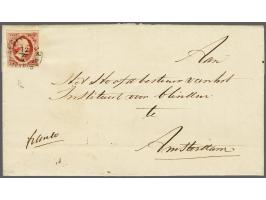 Aan
Het Hoofdbestuur van het
Instituut voor blinden
te
franco
Amsterdam
12